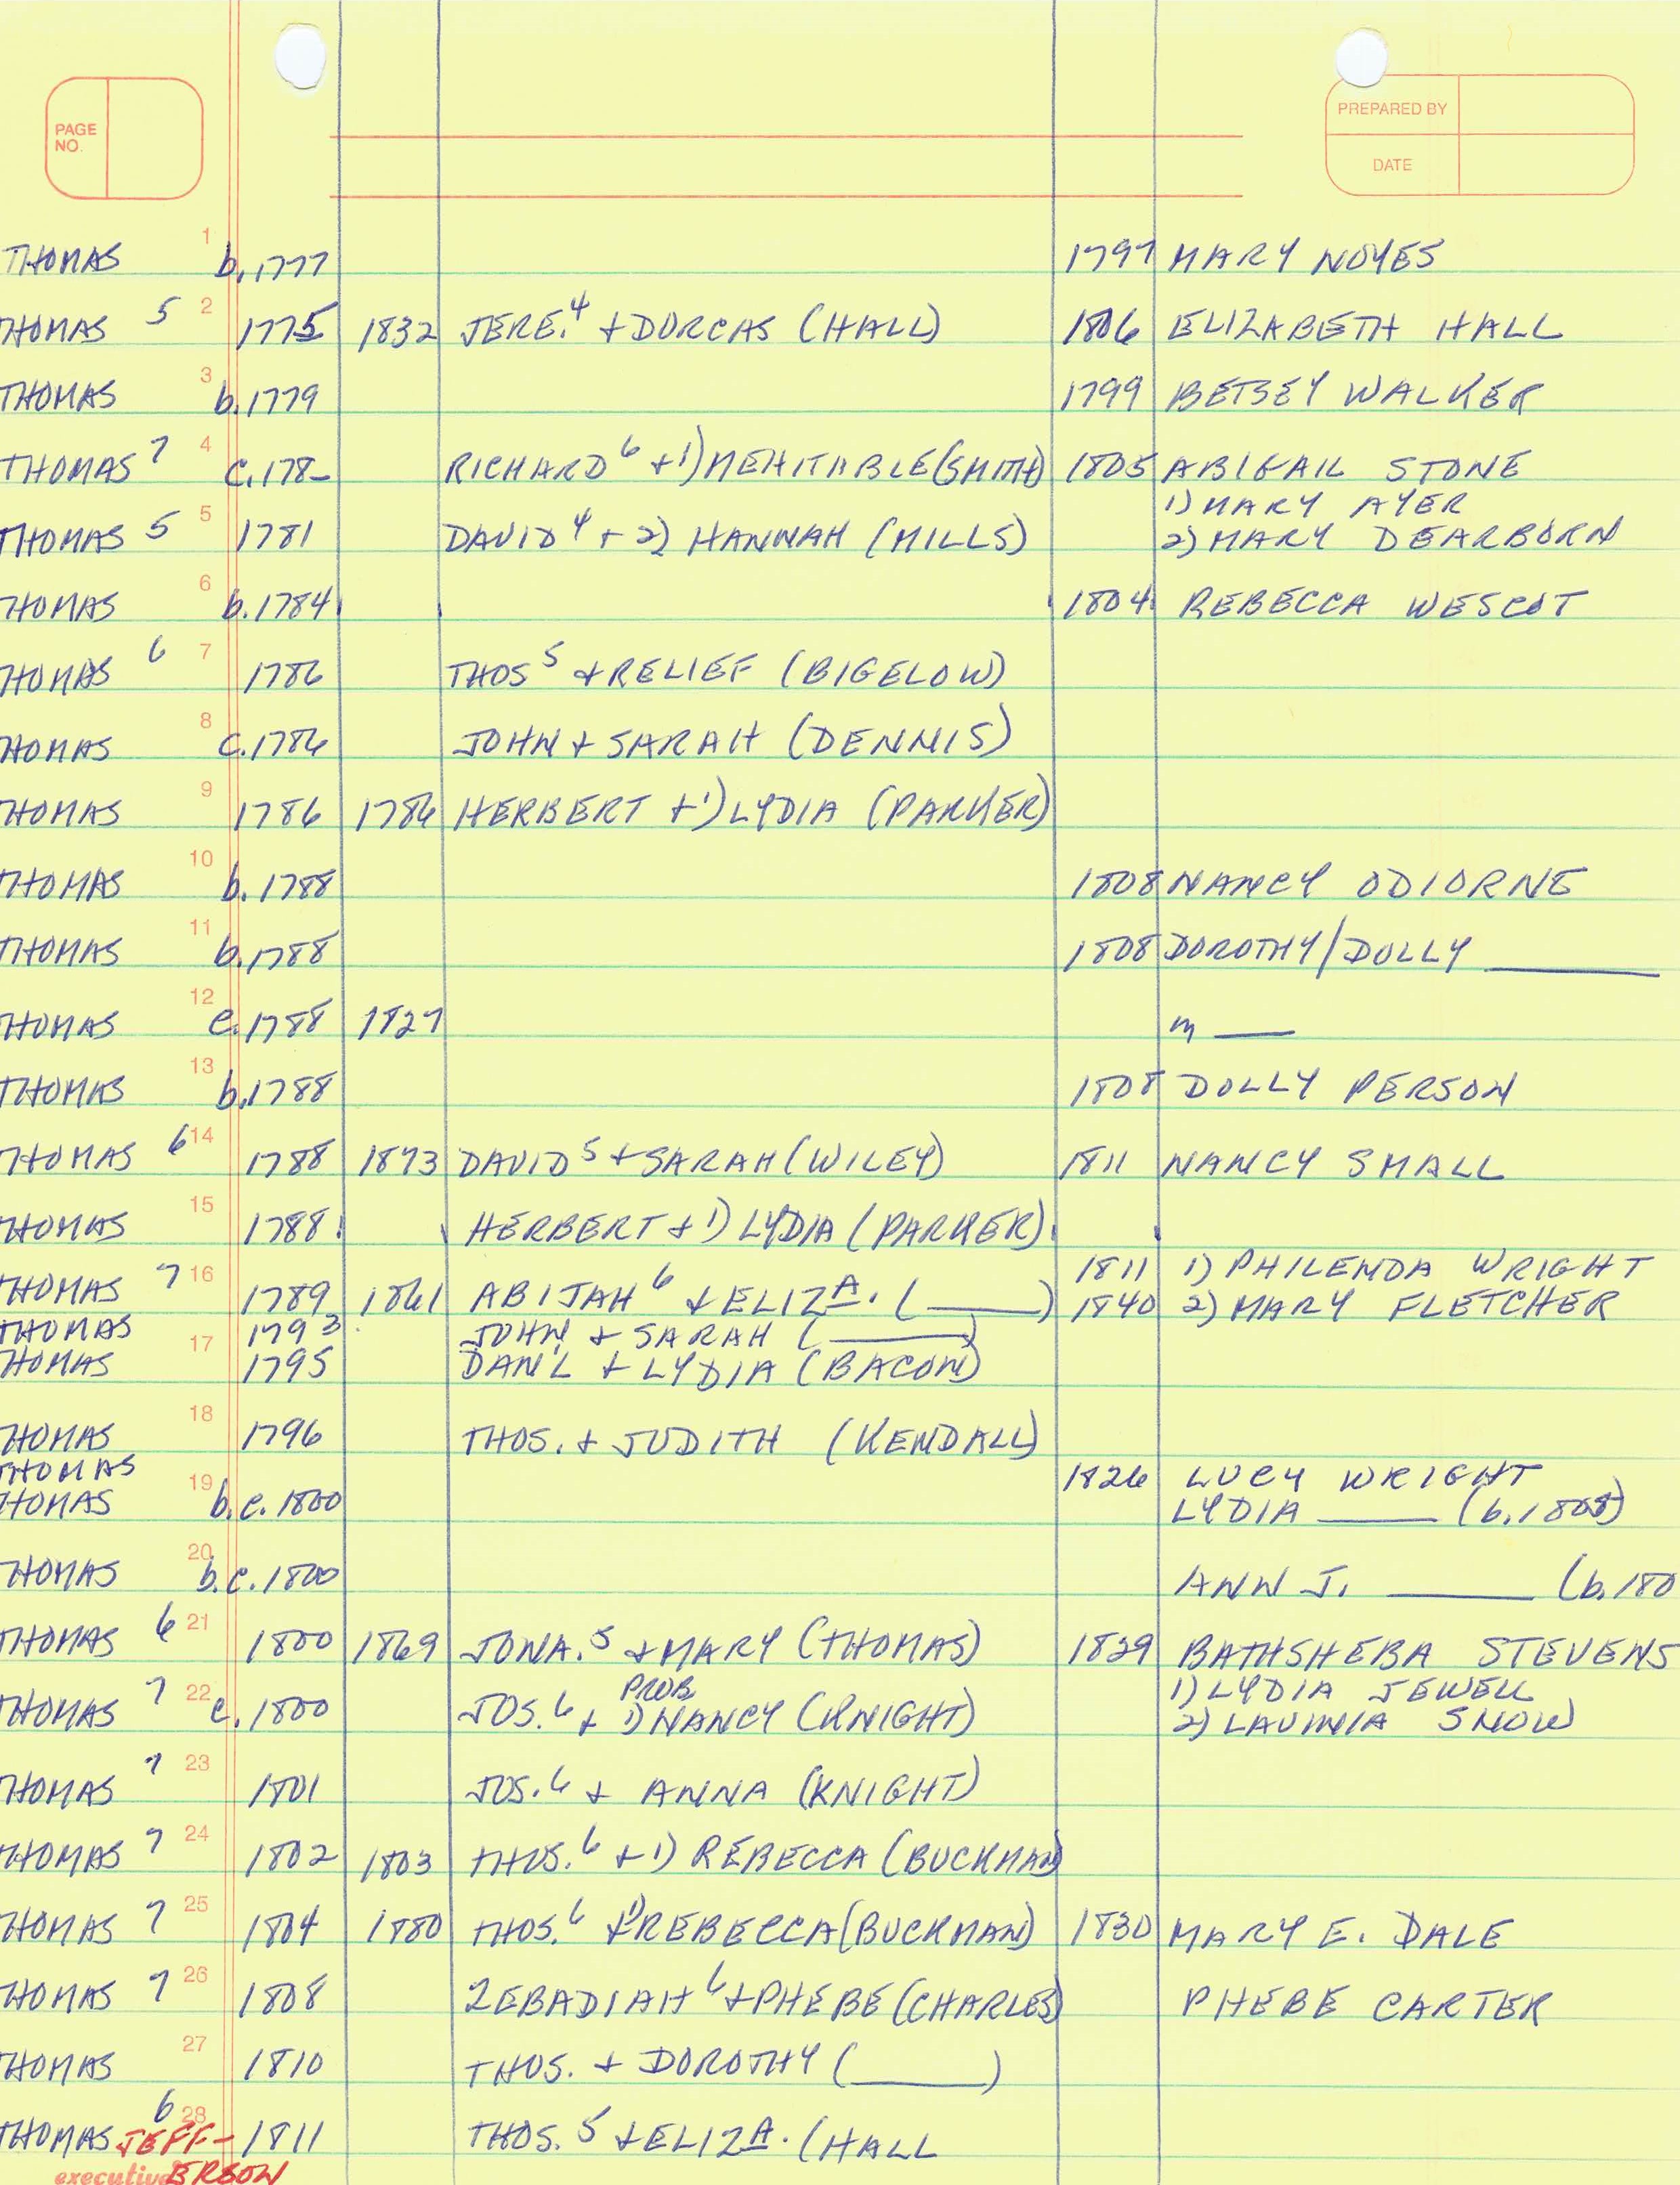 PAGE NO.
PREPARED BY
DATE
THOMAS 1 b.1777 1797 MARY NOYES
THOMAS 5 2 1775 1832 JERE.4 + DORCAS (HALL) 1806 ELIZABETH HALL
THOMAS 3 b.1779 1799 BETSEY WALKER
THOMAS 7 4 C.178_ RICHARD 6 + 1) MEHITABLE (SMITH) 1805 ABIGAIL STONE
1) MARY AYER
THOMAS 5 5 1781 DAVID 4 + 2) HANNAH (MILLS) 2) MARY DEARBORN
THOMAS 6 b.1784 1804 REBECCA WESCOT
THOMAS 6 7 1786 THOS 5 + RELIEF (BIGELOW)
THOMAS 8 C.1786 JOHN + SARAH (DENNIS)
THOMAS 9 1786 1786 HERBERT + 1) LYDIA (PARKER)
THOMAS 10 b.1788 1808 NANCY ODIORNE
THOMAS 11 b.1788 1808 DOROTHY/DOLLY ____
THOMAS 12 c.1788 1827 m ____
THOMAS 13 b.1788 1808 DOLLY PERSON
THOMAS 6 14 1788 1873 DAVID 5 + SARAH (WILEY) 1811 NANCY SMALL
THOMAS 15 1788 HERBERT + 1) LYDIA (PARKER)
1811 1) PHILENDA WRIGHT
THOMAS 7 16 1789 1861 ABIJAH 6 + ELIZA. (____) 1840 2) MARY FLETCHER
THOMAS 1793 JOHN + SARAH (____)
THOMAS 17 1795 DAN'L + LYDIA (BACON)
THOMAS 18 1796 THOS. + JUDITH (KENDALL)
THOMAS 1826 LUCY WRIGHT
THOMAS 19 b.c.1800 LYDIA ____ (b.1808)
THOMAS 20 b.c.1800 ANN J. ____ (b.180
THOMAS 6 21 1800 1869 JONA.5 + MARY (THOMAS) 1829 BATHSHEBA STEVENS
PROB 1) LYDIA JEWELL
THOMAS 7 22 c.1800 JOS.6 + 1) NANCY (KNIGHT) 2) LAVINIA SNOW
THOMAS 7 23 1801 JOS.6 + ANNA (KNIGHT)
THOMAS 7 24 1802 1803 THOS.6 + 1) REBECCA (BUCKMAN)
THOMAS 7 25 1804 1880 THOS.6 + 1) REBECCA (BUCKMAN) 1830 MARY E. DALE
THOMAS 7 26 1808 ZEBADIAH 6 + PHEBE (CHARLES) PHEBE CARTER
THOMAS 27 1810 THOS. + DOROTHY (____)
THOMAS JEFF- 6 28 1811 THOS. 5 + ELIZA. (HALL
executive ERSON